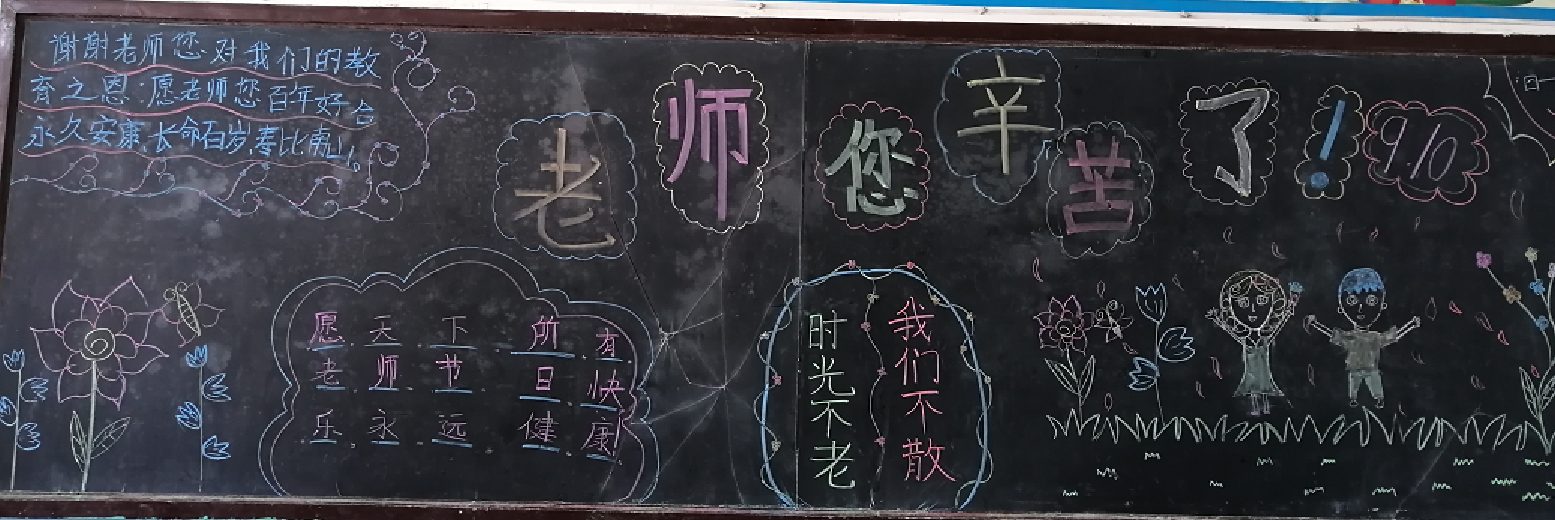 谢谢老师您对我们的教
育之恩,愿老师您百年好合
永久安康,长命百岁,寿比南山。
老师您辛苦了!9.10
愿天下所有
老师节日快
乐永远健康
时光不老
我们不散